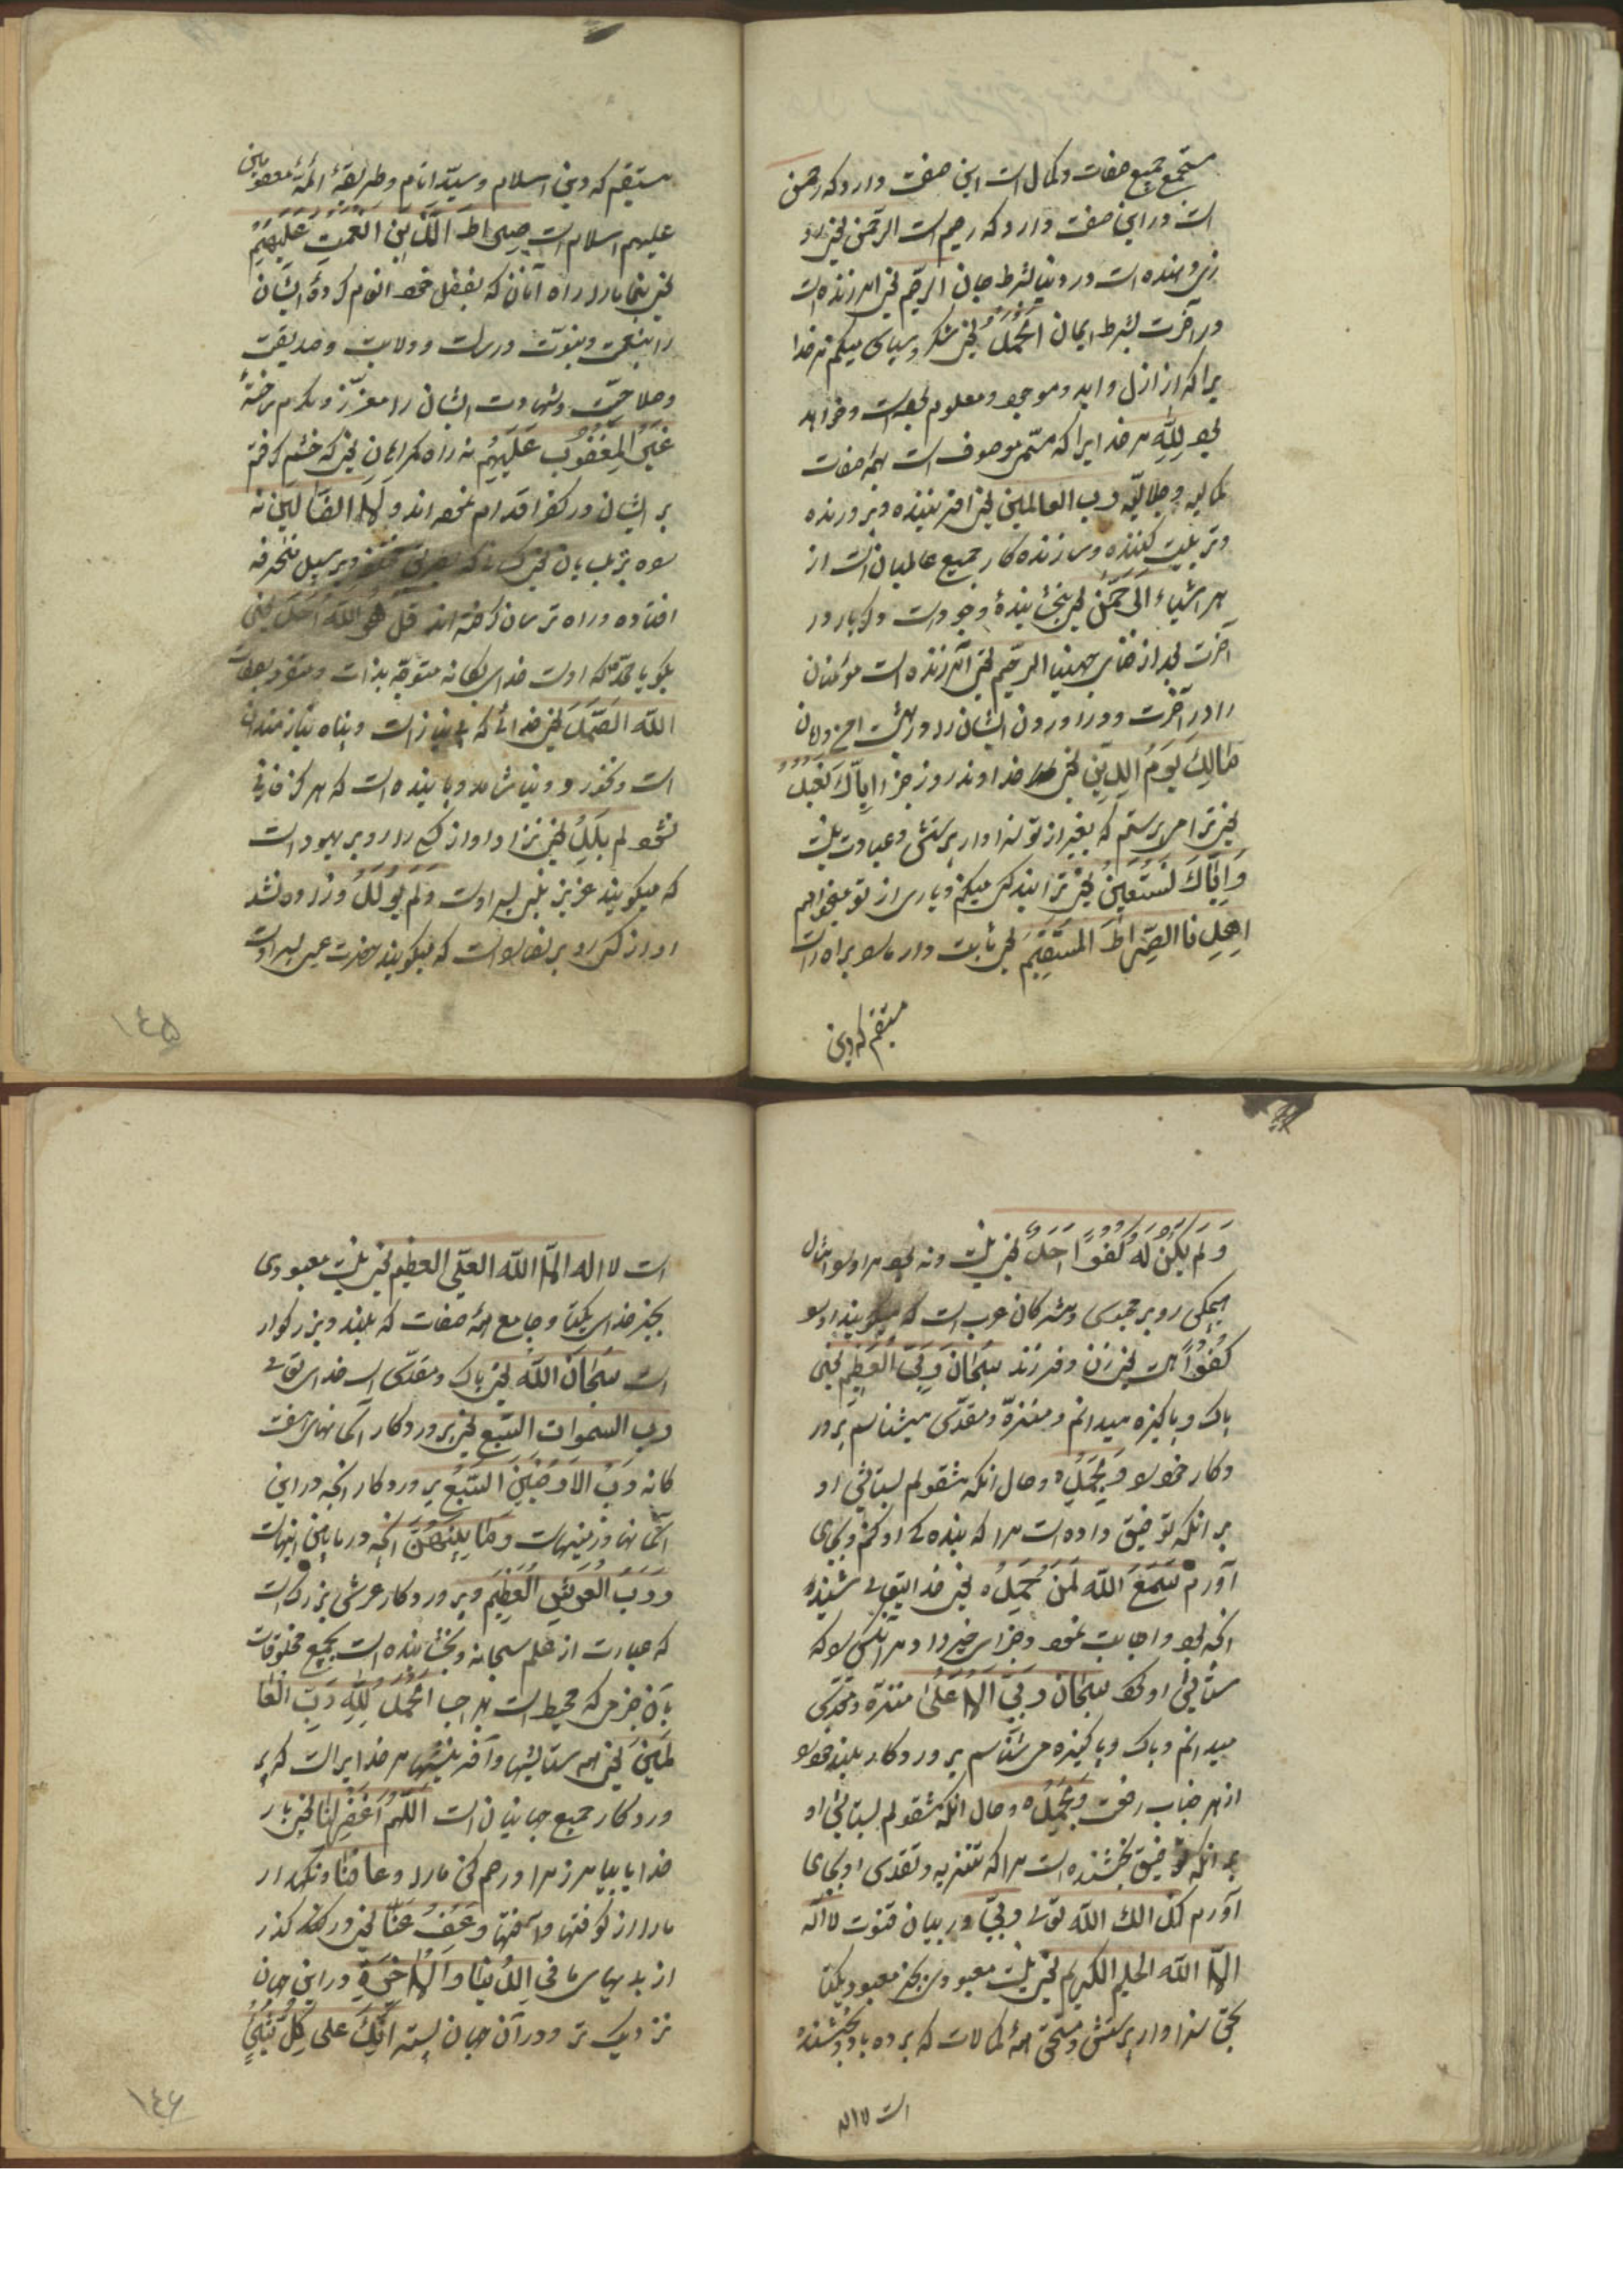 مستجمع جمیع صفات و کمال است این صفت دارد که رحمن
است و در این صفت دارد که رحیم است الرّحمن یعنی
روزی دهنده است در دنیا بشرط جان الرّحیم یعنی آمرزنده است
در آخرت بشرط ایمان اَلْحَمْدُ یعنی شکر و سپاس میکنم مر خدا
یرا که از ازل و ابد و موجود و معلوم بوده است و خواهد
بود لِلّهِ مر خدایرا که موصوف است بهمه صفات
کمالیه و جلالیّه رب العالمین یعنی آفریننده و پرورنده
و تربیت کننده و سازنده کار جمیع عالمیان است از
هر اشیاء اَلرَّحمن یعنی بخشاینده وجود است در
آخرت بعد از فنای الرحیم یعنی آمرزنده است مؤمنان
را در آخرت و در آوردن ایشان را در بهشت
مَالِكِ یَومِ الدِّینِ یعنی خداوند روز جزا اِیّاكَ نَعْبُدُ
یعنی ترا می پرستم که بغیر از تو سزاوار پرستش و عبادت نیست
وَاِیَّاكَ نَسْتَعِینُ یعنی ترا بندگی میکنم و یاری از تو میخواهم
اِهدِنَا الصِّرَاطَ المُسْتَقِیمَ یعنی ثابت دار ما را براه راست
مستقیم که دین
مستقیم که دین اسلام و سیّد انام و طریقهٔ ائمّهٔ معصومین
علیهم السلام است صِرَاطَ الَّذِینَ اَنْعَمْتَ عَلَیْهِمْ
یعنی بنما ما را راه آنان که بفضل خود انعام کردهٔ ایشان
را بنعمت و نبوّت و رسالت و ولایت و صدیقیت
و صلاحیّت و شهادت ایشان را معزّز و مکرّم ساختهٔ
غَیْرِ المَغْضُوبِ عَلَیْهِمْ نه راه گمراهان یعنی که خشم گرفتهٔ
بر ایشان و در کفر اقدام نموده اند وَلَا الضَّالّینَ نه
راه
افتاده و راه ترسان گرفته اند قُلْ هُوَ اللّهُ اَحَدٌ یعنی
بگو یا محمّد که اوست خدای یگانه متوحّد بذات و متفرد بصفات
اَللّهُ الصَّمَدُ یعنی خدائی که بی نیاز است و پناه نیازمندان
است و پاینده است که هرگز فانی
نشود لم یَلِدْ یعنی نزاد او از کسی را رد بر یهود است
که میگویند عزیر پسر اوست وَ لَم یُولَدْ و زاده نشد
او از کسی رد بر نصارا است که میگویند حضرت عیسی پسر اوست
١٤۵
وَ لَمْ یَکُنْ لَهُ کُفُوًا اَحَدٌ یعنی نیست و نه بود مر او را مثال
هیچکس رد بر مجوسی و مشرکان عرب است که میگویند او را
کُفُوًا هست یعنی زن و فرزند سُبحَانَ رَبِّیَ الْعَظِیمِ یعنی
پاک و پاکیزه میدانم و منزّه و مقدّس میشناسم پرور
دگار خود را وَ بِحَمْدِهِ و حال آنکه مشغولم بستایش او
بر آنکه توفیق داده است مرا که بندهگی او کنم و بجای
آورم سَمِعَ اللّهُ لِمَنْ حَمِدَهُ یعنی خدایتعالی شنیده
آنچه بود و اجابت نمود و جزای خیر داد مر آنکس را که
ستایش او کرد سُبحَانَ رَبِّیَ الاَعْلیٰ منزّه و مقدّس
میدانم و پاک و پاکیزه می شناسم پروردگار بلند خود را
از هر جناب رفعت وَ بِحَمْدِهِ و حال آنکه مشغولم بستایش او
بر آنکه توفیق بخشنده است مرا که تنزیه و تقدیس او بجای
آورم کذلك اللّه ربّی در بیان قنوت لا اله
الا اللّه الحلیم الکریم یعنی نیست معبودی بجز معبود یکتا
بحق سزاوار پرستش و مستحق همهٔ کمالات که بردبار و بخشنده
است لا اله
است لا اله الّا اللّه العلیّ العظیم یعنی نیست معبودی
بجز خدای یکتا و جامع همهٔ صفات که بلند و بزرگوار
است سُبحَانَ اللّه یعنی پاک و مقدّس است خدای تعالی
رب السموات السّبع یعنی پروردگار آسمانهای هفت
گانه وَ رَبِّ الاَرَضِینَ السَّبْعِ پروردگار آنچه در این
آسمانها و زمینهاست وَ مَا بَیْنَهُنَّ آنچه در مابین اینهاست
وَ رَبِّ الْعَرْشِ الْعَظِیمِ و پروردگار عرش بزرگ است
که عبارت از علم سبحانه و بخشاینده است بجمیع مخلوقات
بآن چیزی که محیط است اَلْحَمْدُ لِلّهِ رَبِّ العَا
لَمِینَ یعنی همه ستایشها و آفرینشها مر خدایرا است که پر
وردگار جمیع جهانیان است اَللّهُمَّ اغْفِرْلَنَا یعنی بار
خدایا بیامرز مرا و رحم کن ما را وَ عَافِنَا و نگهدار
ما را از کوفتها و آفتها وَ عْفُ عَنَّا یعنی در گذر
از بدیهای ما فِی الدُّنیَا وَ الْاٰخِرَةِ در این جهان
نزدیک تر و در آن جهان اِنَّكَ عَلی کُلِّ شَیْءٍ
١٤۶